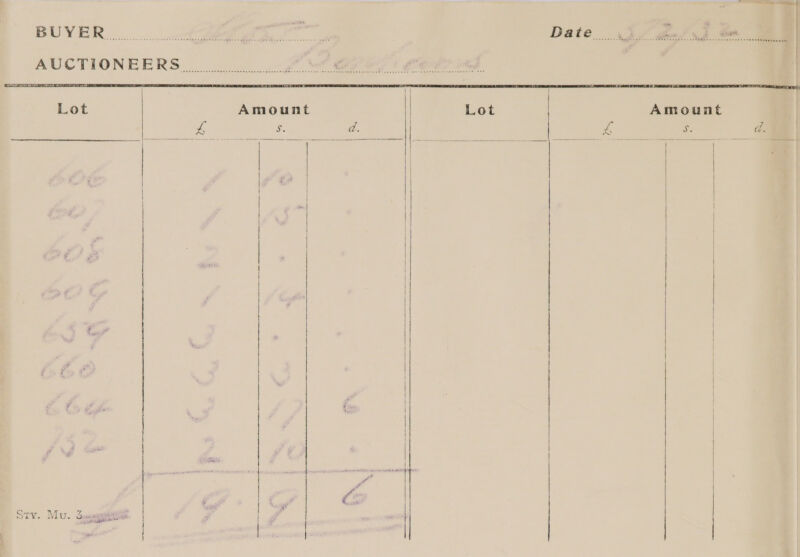 BUYER Date 5/2/32
AUCTIONEERS Bonhams
Lot Amount Lot Amount
£ s. d. £ s. d.
606 1 10 .
607 1 15 .
608 2 . .
609 1 14 .
659 3 . .
660 3 3 .
664 3 17 6
752 2 10 .
STY. MU. 3 £ 19. 9 6